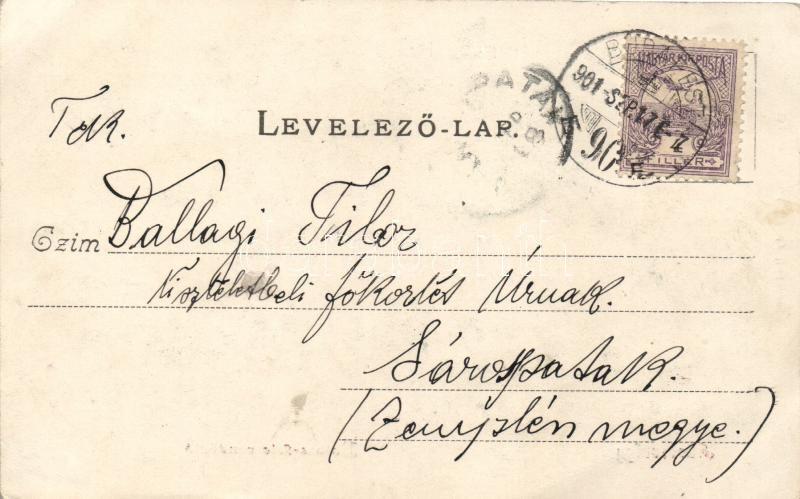 MAGYAR KIR. POSTA
901 SZEP. 17
FILLÉR
PATAK
Tek.
LEVELEZŐ-LAP.
Czim Ballagi Tibor
tiszteletbeli főkortés Úrnak.
Sárospatak.
(Zemplén megye.)